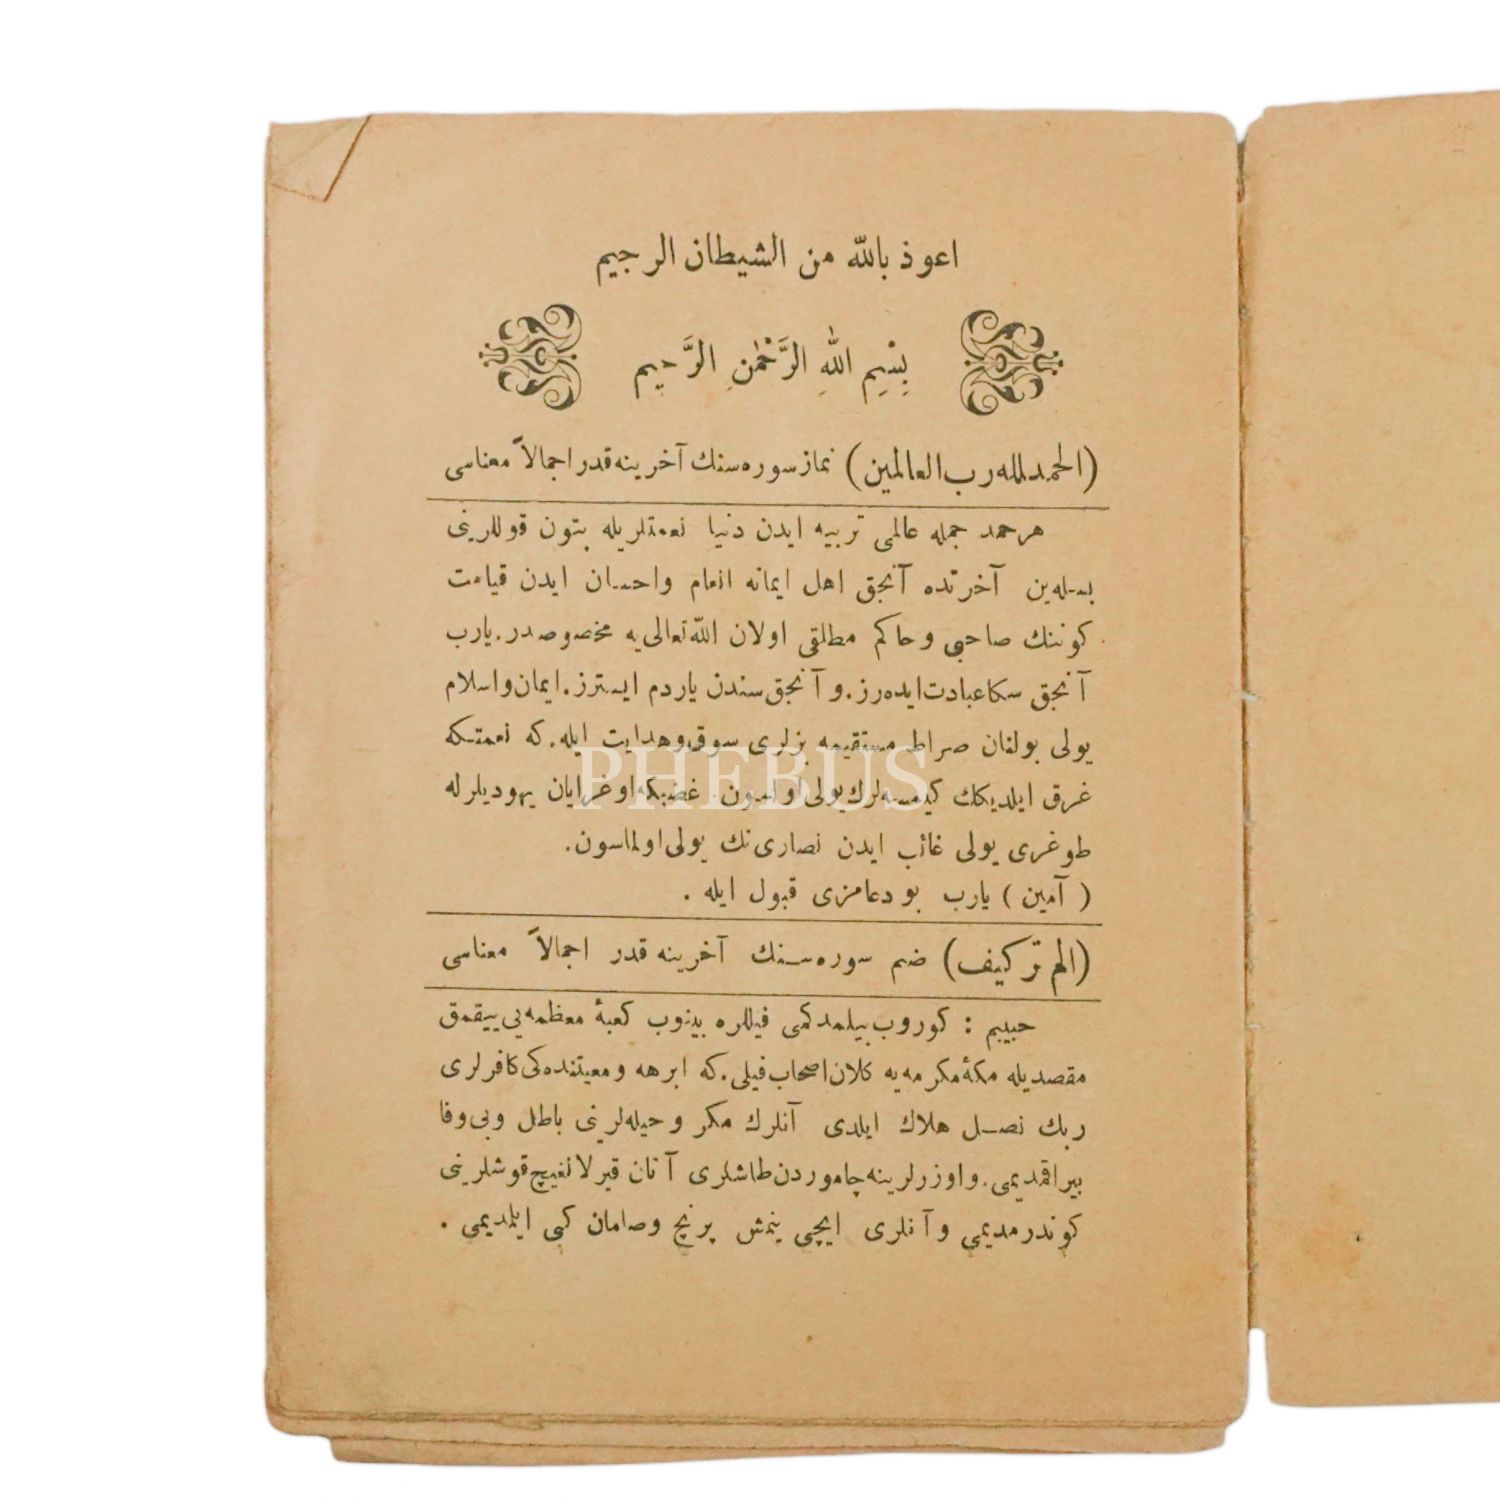 اعوذ بالله من الشيطان الرجيم
بِسْمِ اللهِ الرَّحْمٰنِ الرَّحِيم
(الحمدلله رب العالمين) نماز سوره سنك آخرينه قدر اجمالاً معناسى
هر حمد جمله عالمى تربيه ايدن دنيا نعمتلريله بتون قوللرينى
بسله‌ين آخرتده آنجق اهل ايمانه انعام واحسان ايدن قيامت
كوننك صاحبى و حاكم مطلقى اولان الله تعالى يه مخصوصدر. يارب
آنجق سكا عبادت ايده‌رز. و آنجق سندن ياردم ايسترز. ايمان واسلام
يولى بولنان صراط مستقيمه بزلرى سوق وهدايت ايله. كه نعمتكه
غرق ايلديكك كيمسه‌لرك يولى اولسون. غضبكه اوغرايان يهوديلرله
طوغرى يولى غائب ايدن نصارى نك يولى اولماسون.
(آمين) يارب بو دعامزى قبول ايله .
(الم تر كيف) ضم سوره سنك آخرينه قدر اجمالاً معناسى
حبيبم : كوروب بيلمدكمى فيللره بينوب كعبۀ معظمه يى ييقمق
مقصديله مكۀ مكرمه يه كلان اصحاب فيلى. كه ابرهه و معيتنده كى كافرلرى
ربك نصل هلاك ايلدى آنلرك مكر و حيله لرينى باطل وبى وفا
بيراقمديمى. و اوزرلرينه چاموردن طاشلرى آتان قيرلانغيچ قوشلرينى
كوندرمديمى و آنلرى ايچى ينمش پرنچ وصامان كبى ايلديمى .
PHEBUS